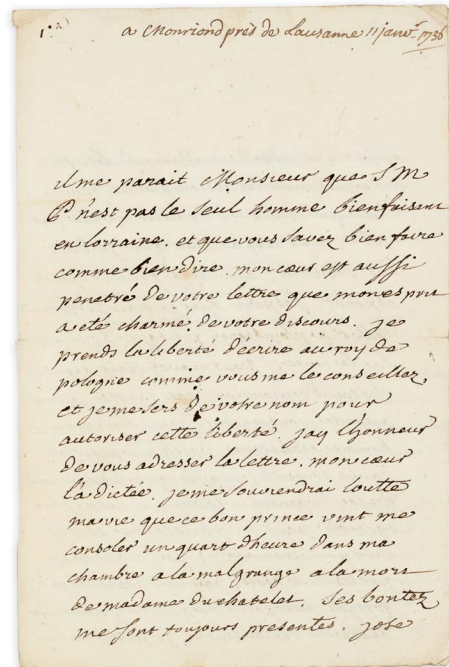 1.° a Monriond près de Lausanne 11 janv.r 1756
il me parait Monsieur que S M
P n'est pas le seul homme bienfaisant
en lorraine. et que vous savez bien faire
comme bien dire. mon cœur est aussi
penetré de votre lettre que mon esprit
a eté charmé de votre discours. je
prends la liberté d'écrire au roy de
pologne comme vous me le conseillez
et je me sers de votre nom pour
autoriser cette liberté. jay l'honneur
de vous adresser la lettre. mon cœur
l'a dictée. je me souviendrai toutte
ma vie que ce bon prince vint me
consoler un quart d'heure dans ma
chambre a la malgrange a la mort
de madame du chatelet. ses bontez
me sont toujours presentes. jose